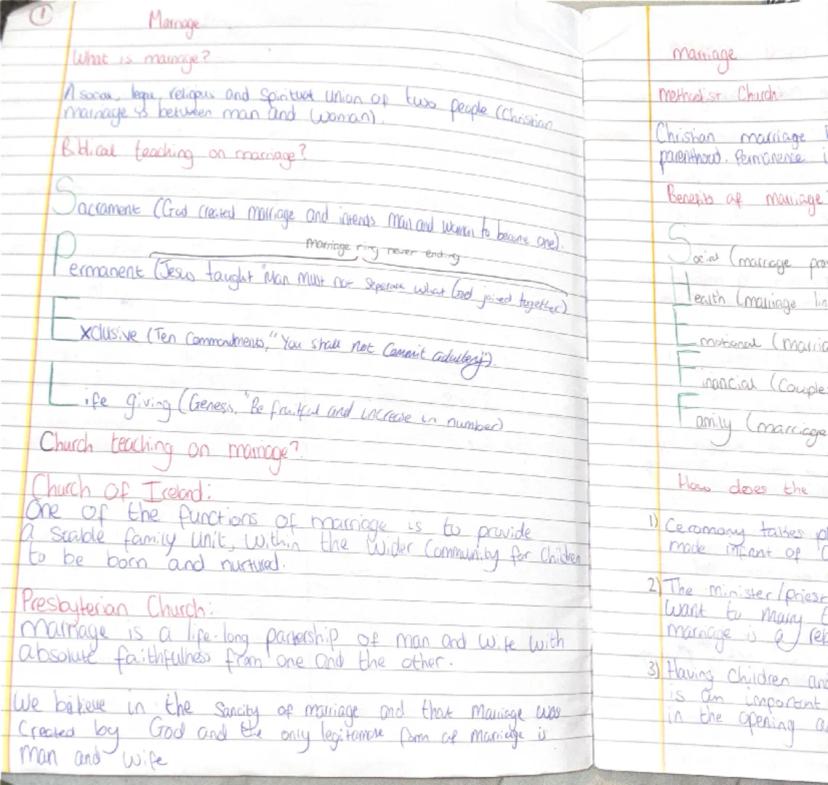 1
Marriage
What is marriage?
A social, legal, religious and Spiritual union of two people (Christian
marriage is between man and woman).
Biblical teaching on marriage?
Sacrament (God created marriage and intends man and woman to become one).
marriage ring never ending
Permanent (Jesus taught "Man must not separate what God joined together)
Exclusive (Ten Commandments, "You shall not commit adultery).
Life giving (Genesis, "Be fruitful and increase in number)
Church teaching on marriage?
Church of Ireland:
One of the functions of marriage is to provide
a stable family unit, within the wider Community for Children
to be born and nurtured.
Presbyterian Church:
marriage is a life-long partership of man and wife with
absolute faithfulness from one and the other.
We believe in the Sancity of marriage and that Marriage was
Created by God and the only legitamate form of marriage is
man and wife
marriage
Methodist Church
Christian marriage
parenthood. Permanence
Benefits of marriage
Social (marriage
Health (marriage
Emotional
Financial (Couple
Family (marriage
How does the
1) Ceromony takes
made infront of
2) The minister/priest
want to marry
marriage is a
3) Having Children
is an important
in the opening